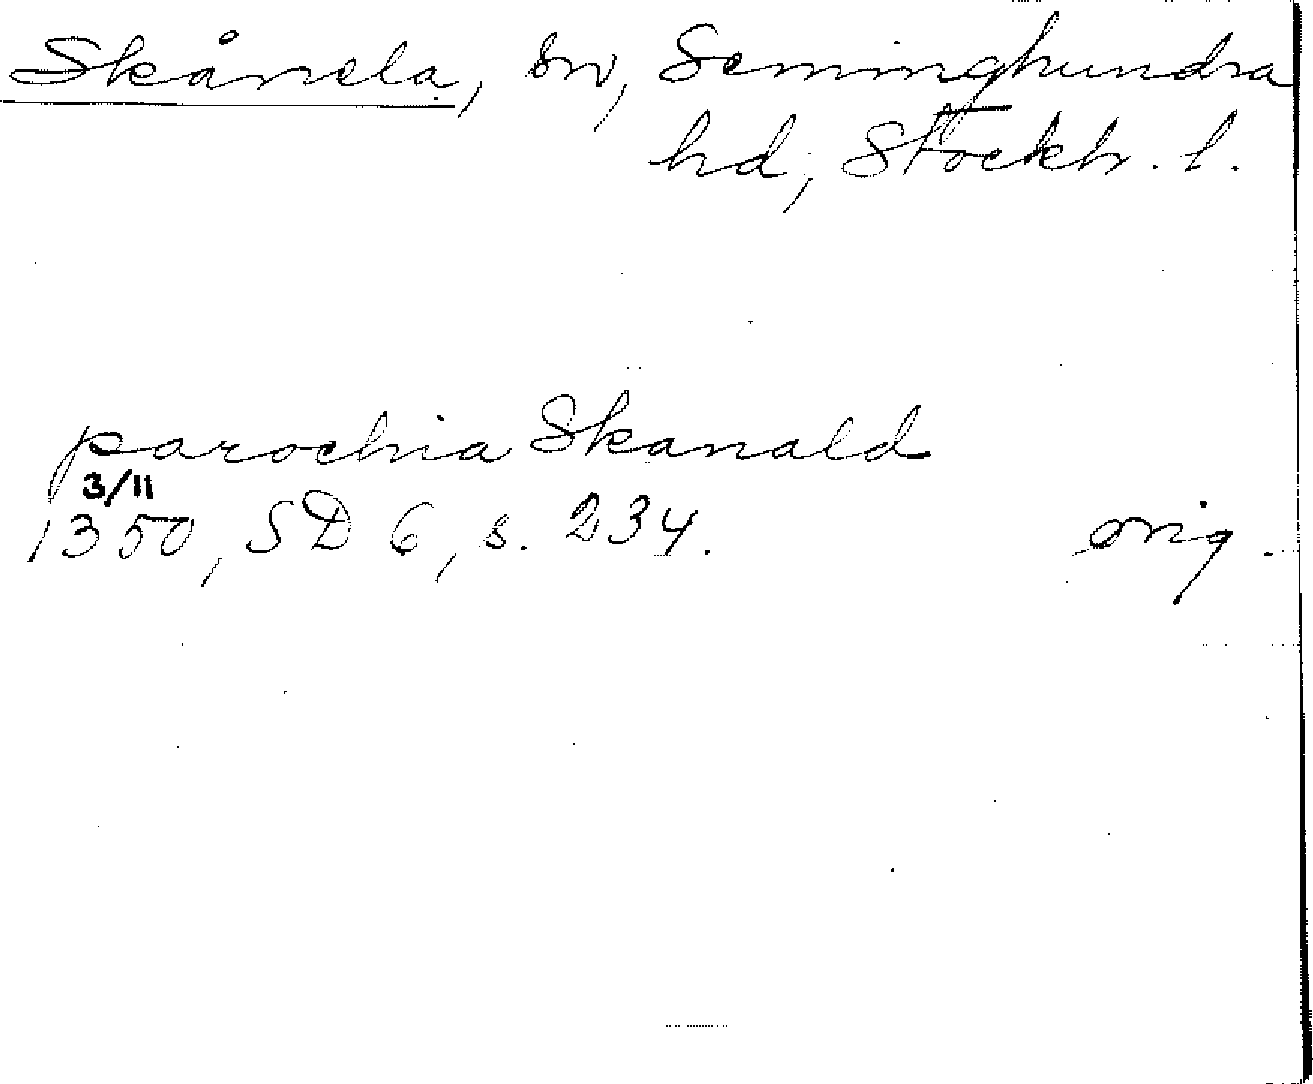 Skånela, sn, Seminghundra
hd, Stockh. l.
parochia Skanald
3/11
1350, SD 6, s. 234. orig.